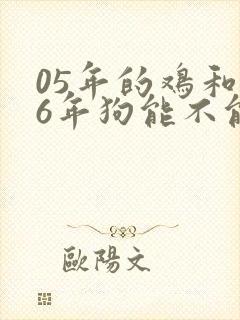 05年的鸡和
6年狗能不能
歐陽文